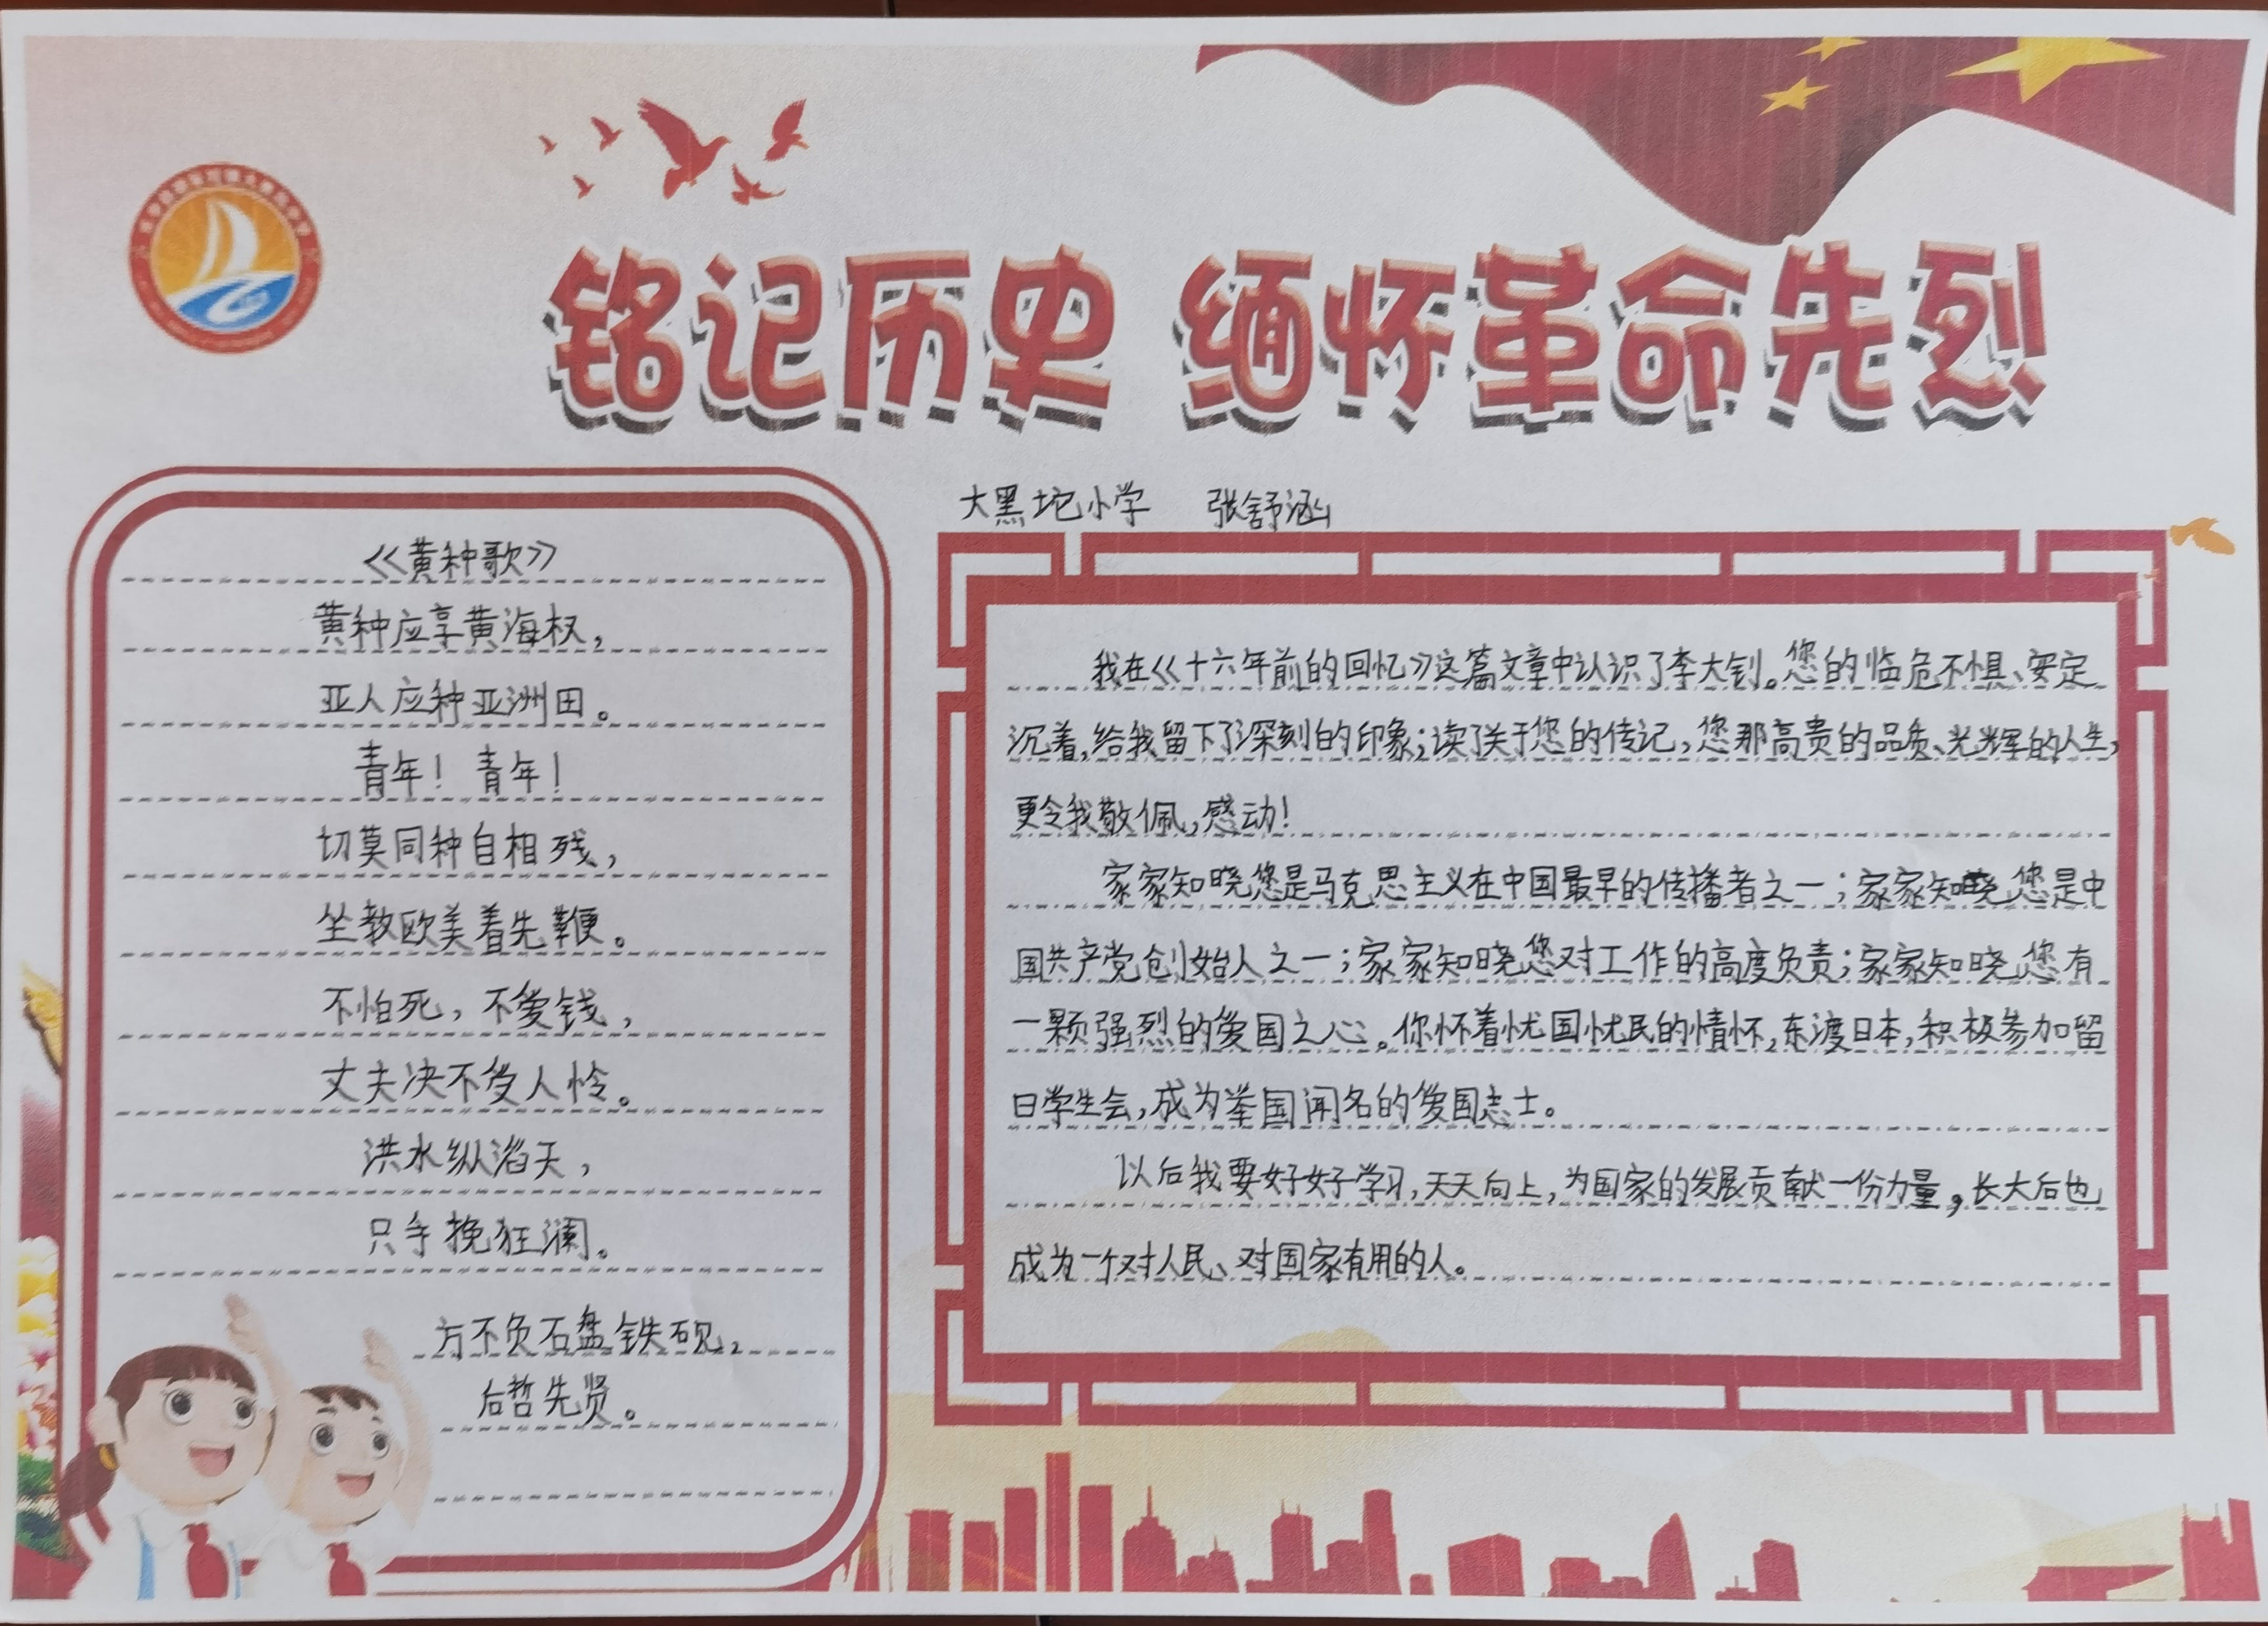 铭记历史 缅怀革命先烈
大黑坨小学 张舒涵
《黄种歌》
黄种应享黄海权，
亚人应种亚洲田。
青年！青年！
切莫同种自相残，
坐教欧美着先鞭。
不怕死，不爱钱，
丈夫决不受人怜。
洪水纵滔天，
只手挽狂澜。
方不负石盘铁砚，
后哲先贤。
我在《十六年前的回忆》这篇文章中认识了李大钊。您的临危不惧、安定
沉着，给我留下了深刻的印象；读了关于您的传记，您那高贵的品质、光辉的人生，
更令我敬佩，感动！
家家知晓您是马克思主义在中国最早的传播者之一；家家知晓您是中
国共产党创始人之一；家家知晓您对工作的高度负责；家家知晓您有
一颗强烈的爱国之心。你怀着忧国忧民的情怀，东渡日本，积极参加留
日学生会，成为举国闻名的爱国志士。
以后我要好好学习，天天向上，为国家的发展贡献一份力量，长大后也
成为一个对人民、对国家有用的人。